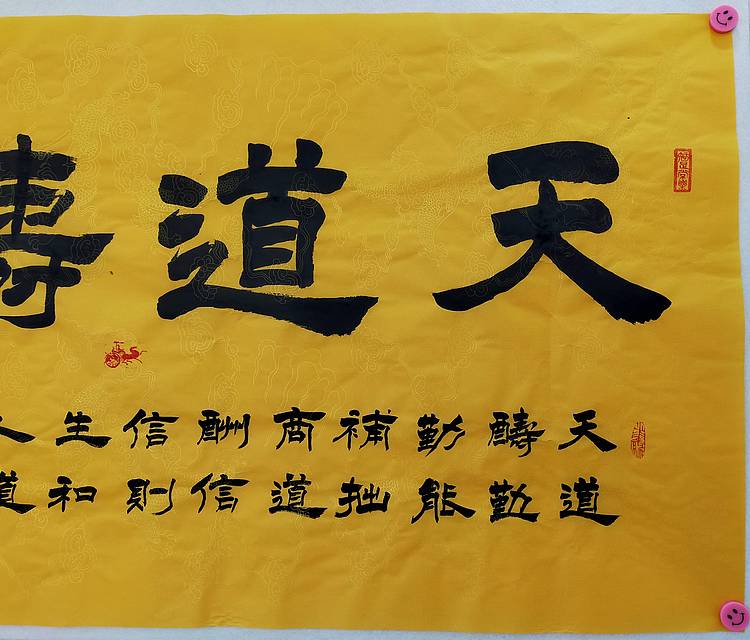 天道
天道
醻勤
勤能
補拙
商道
酬信
信則
生和
道